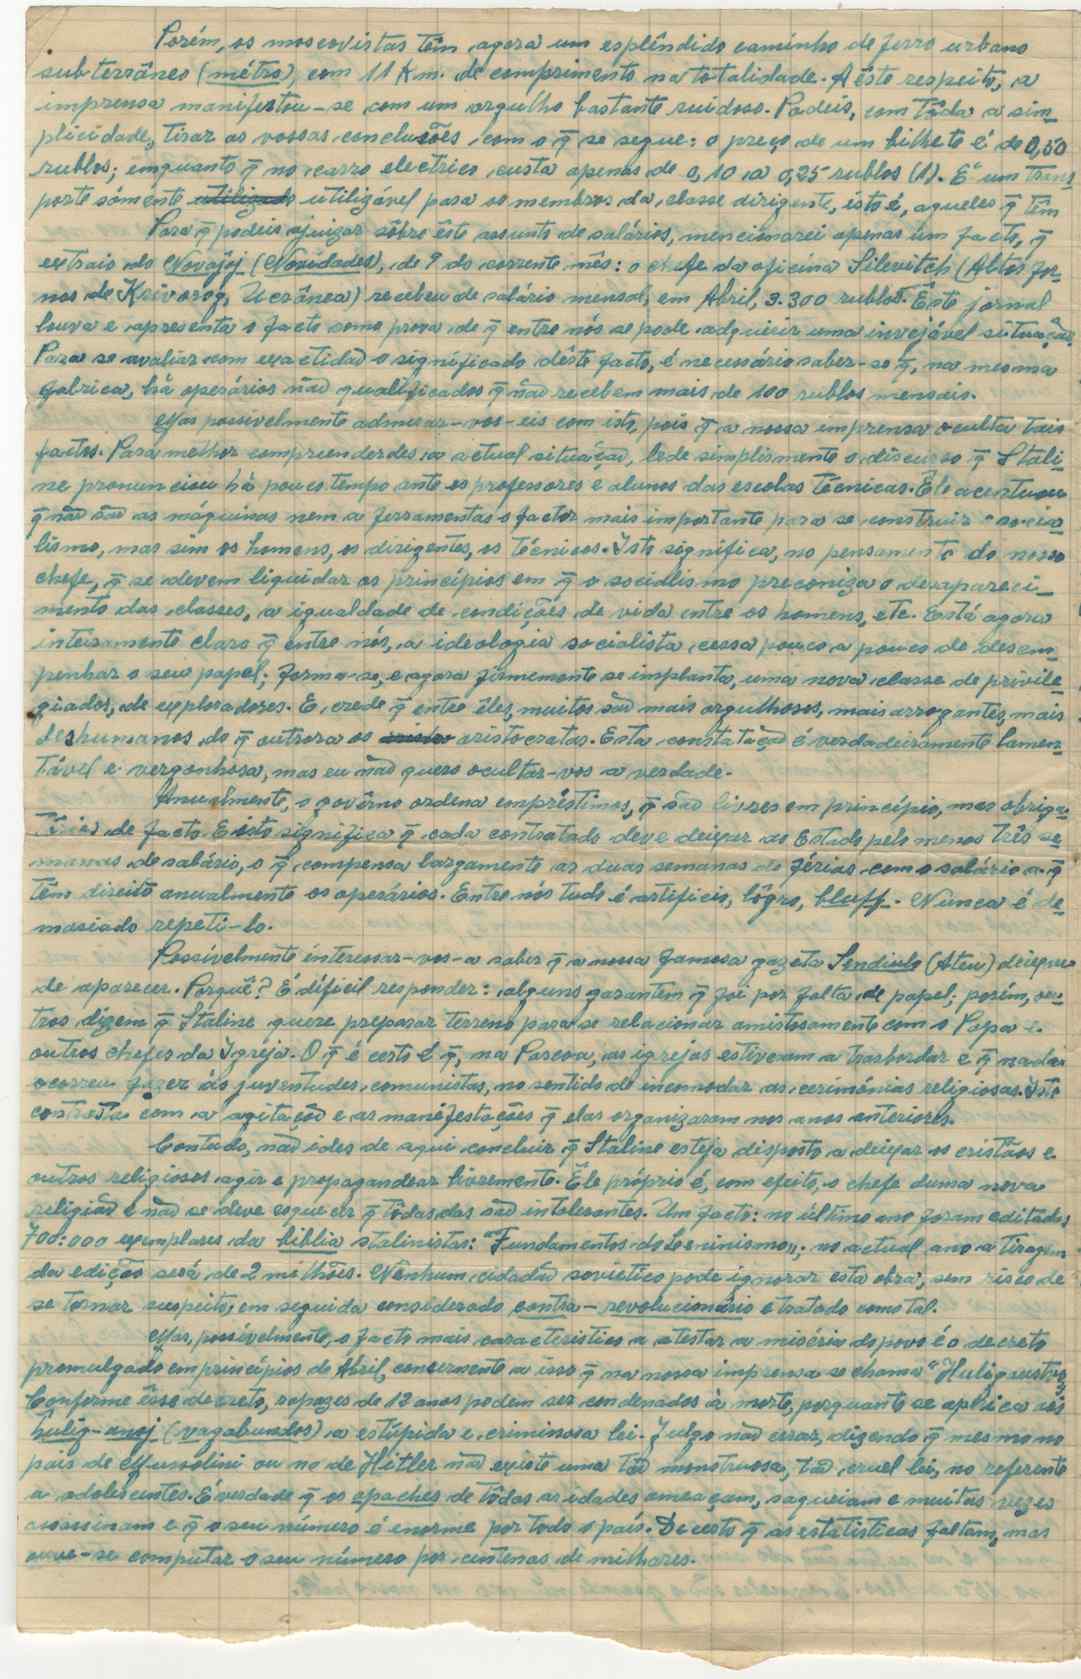 Porém, os moscovistas têm agora um esplêndido caminho de ferro urbano
subterrâneo (métro) com 11 Km. de comprimento na totalidade. A êste respeito, a
imprensa manifestou-se com um orgulho bastante ruidoso. Podeis, com tôda a sim-
plicidade, tirar as vossas conclusões com o q̃ se segue: o preço de um bilhete é de 0,50
rublos; emquanto q̃ no carro electrico custa apenas de 0,10 a 0,25 rublos (1). É um trans-
porte sómente utilizável para os membros da classe dirigente, isto é, aqueles q̃ têm
Para q̃ podeis ajuizar sôbre êste assunto de salários, mencionarei apenas um facto, q̃
extraio do Novajoj (Novidades), de 9 do corrente mês: o chefe da oficina Silevitch (Altos for-
nos de Krivorog, Ucrânea) recebeu de salário mensal, em Abril, 3.300 rublos. Êste jornal
louva e apresenta o facto como prova de q̃ entre nós se pode adquirir uma invejável situação.
Para se avaliar com exactidão o significado dêste facto, é necessário saber-se q̃, na mesma
fabrica, há operários não qualificados q̃ não recebem mais de 100 rublos mensais.
Mas possivelmente admirar-vos-eis com isto, pois q̃ a nossa imprensa oculta tais
factos. Para melhor compreenderdes a actual situação, lede simplesmente o discurso q̃ Stali-
ne pronunciou há pouco tempo ante os professores e alunos das escolas técnicas. Êle acentuou
q̃ não são as máquinas nem a ferramentas o factor mais importante para se construir o socia-
lismo, mas sim os homens, os dirigentes, os técnicos. Isto significa, no pensamento do nosso
chefe, q̃ se devem liquidar os princípios em q̃ o socialismo preconiza o desapareci-
mento das classes, a igualdade de condições de vida entre os homens, etc. Está agora
inteiramente claro q̃ entre nós, a ideologia socialista cessa pouco a pouco de desem-
penhar o seu papel; forma-se, e agora firmemente se implanta, uma nova classe de privile-
giados, de exploradores. E, crede q̃ entre êles, muitos são mais orgulhosos, mais arrogantes, mais
deshumanos do q̃ outrora os aristocratas. Esta constatação é verdadeiramente lamen-
tável e vergonhosa, mas eu não quero ocultar-vos a verdade.
Anualmente, o govêrno ordena empréstimos, q̃ são livres em princípio, mas obriga-
tórios de facto. E isto significa q̃ cada contratado deve deixar ao Estado pelo menos três se-
manas de salário, o q̃ compensa largamente as duas semanas de férias com o salário a q̃
têm direito anualmente os operários. Entre nós tudo é artifício, lôgro, bluff. Nunca é de-
masiado repeti-lo.
Possívelmente interessar-vos-a saber q̃ a nossa famosa gazeta Sendiulo (Ateu) deixou
de aparecer. Porquê? É díficil responder: alguns garantem q̃ foi por falta de papel; porém, ou-
tros dizem q̃ Staline quere preparar terreno para se relacionar amistosamente com o Papa e
outros chefes da Igreja. O q̃ é certo é q̃, na Pascoa, as igrejas estiveram a trasbordar e q̃ nada
ocorreu fazer ás juventudes comunistas, no sentido de incomodar as cerimónias religiosas. Isto
contrasta com a agitação e as manifestações q̃ elas organizaram nos anos anteriores.
Contudo, não ides de aqui concluir q̃ Staline esteja disposto a deixar os cristãos e
outros religiosos agir e propagandear livremente. Êle próprio é, com efeito, o chefe duma nova
religião e não se deve esquecer q̃ tôdas elas são intolerantes. Um facto: no último ano foram editados
700:000 exemplares da biblia stalinista: "Fundamentos do Leninismo"; no actual ano a tiragem
da edição será de 2 milhões. Nenhum cidadão sovietico pode ignorar esta obra, sem risco de
se tornar suspeito, em seguida considerado contra-revolucionário e tratado como tal.
Mas, possívelmente, o facto mais caracteristico a atestar a miséria do povo é o decreto
promulgado em princípios de Abril, concernente a isso q̃ na nossa imprensa se chama "Huliganismo".
Conforme êsse decreto, rapazes de 12 anos podem ser condenados à morte, porquanto se aplica aos
hulig-anoj (vagabundos) a estúpida e criminosa lei. Julgo não errar, dizendo q̃ mesmo no
país de Mussolini ou no de Hitler não existe uma tão monstruosa, tão cruel lei, no referente
a adolescentes. É verdade q̃ os apaches de tôdas as idades ameaçam, saqueiam e muitas vezes
assassinam e q̃ o seu número é enorme por todo o país. De certo q̃ as estatisticas faltam, mas
ouve-se computar o seu número por centenas de milhares.